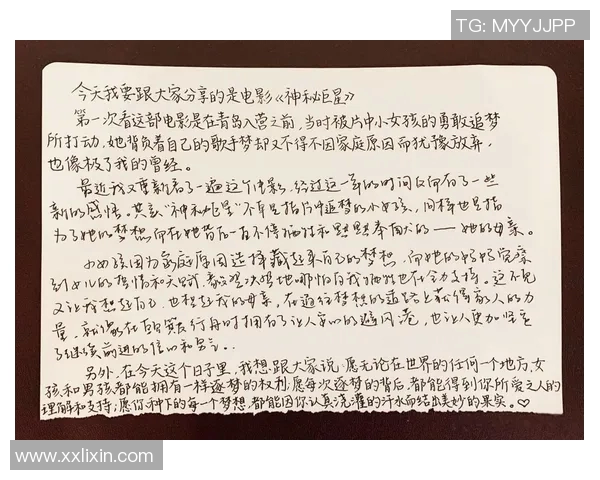 TG: MYYJJPP
今天我要跟大家分享的是电影《神秘巨星》
第一次看这部电影是在青岛入营之前,当时被片中小女孩的勇敢追梦
所打动,她背负着自己的歌手梦却又不得不因家庭原因而犹豫放弃,
也像极了我的曾经。
最近我又重新看了一遍这个电影,经过这一年的时间又向有了一些
新的感悟。其实"神秘巨星"不单是指片中追梦的小女孩,同样也是指
为了她的梦想而在她背后一直不惜牺牲和默默奉献的——她的母亲。
小女孩因为家庭原因选择藏起来自己的梦想,而她的妈妈察觉
到女儿的热情和天赋,哪怕自我牺牲也在全力支持。这不免
又让我想起自己,也想起我的母亲,在追往梦想的道路上获得家人的力
量,就像在行舟时拥有了让人安心的避风港,也让人更加坚定
了继续前进的信心和勇气。
另外,在今天这个日子里,我想跟大家说:愿无论在世界的任何一个地方,女
孩和男孩都能拥有一样逐梦的权利;愿每次逐梦的背后,都能得到你所爱之人的
理解和支持;愿你种下的每一个梦想,都能因你认真浇灌的汗水而结出美妙的果实。♡
www.xxlixin.com